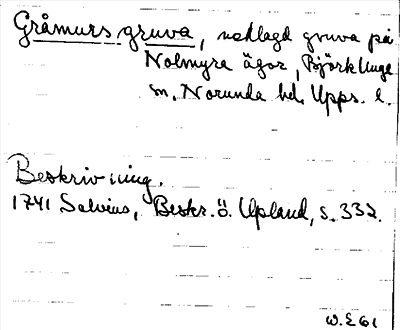 Gråmurs gruva, nedlagd gruva på
Nolmyra ägor, Björklinge
sn, Norunda hd, Upps. l.
Beskrivning.
1741 Salvius, Beskr. ö. Upland, s. 332.
W. E 61